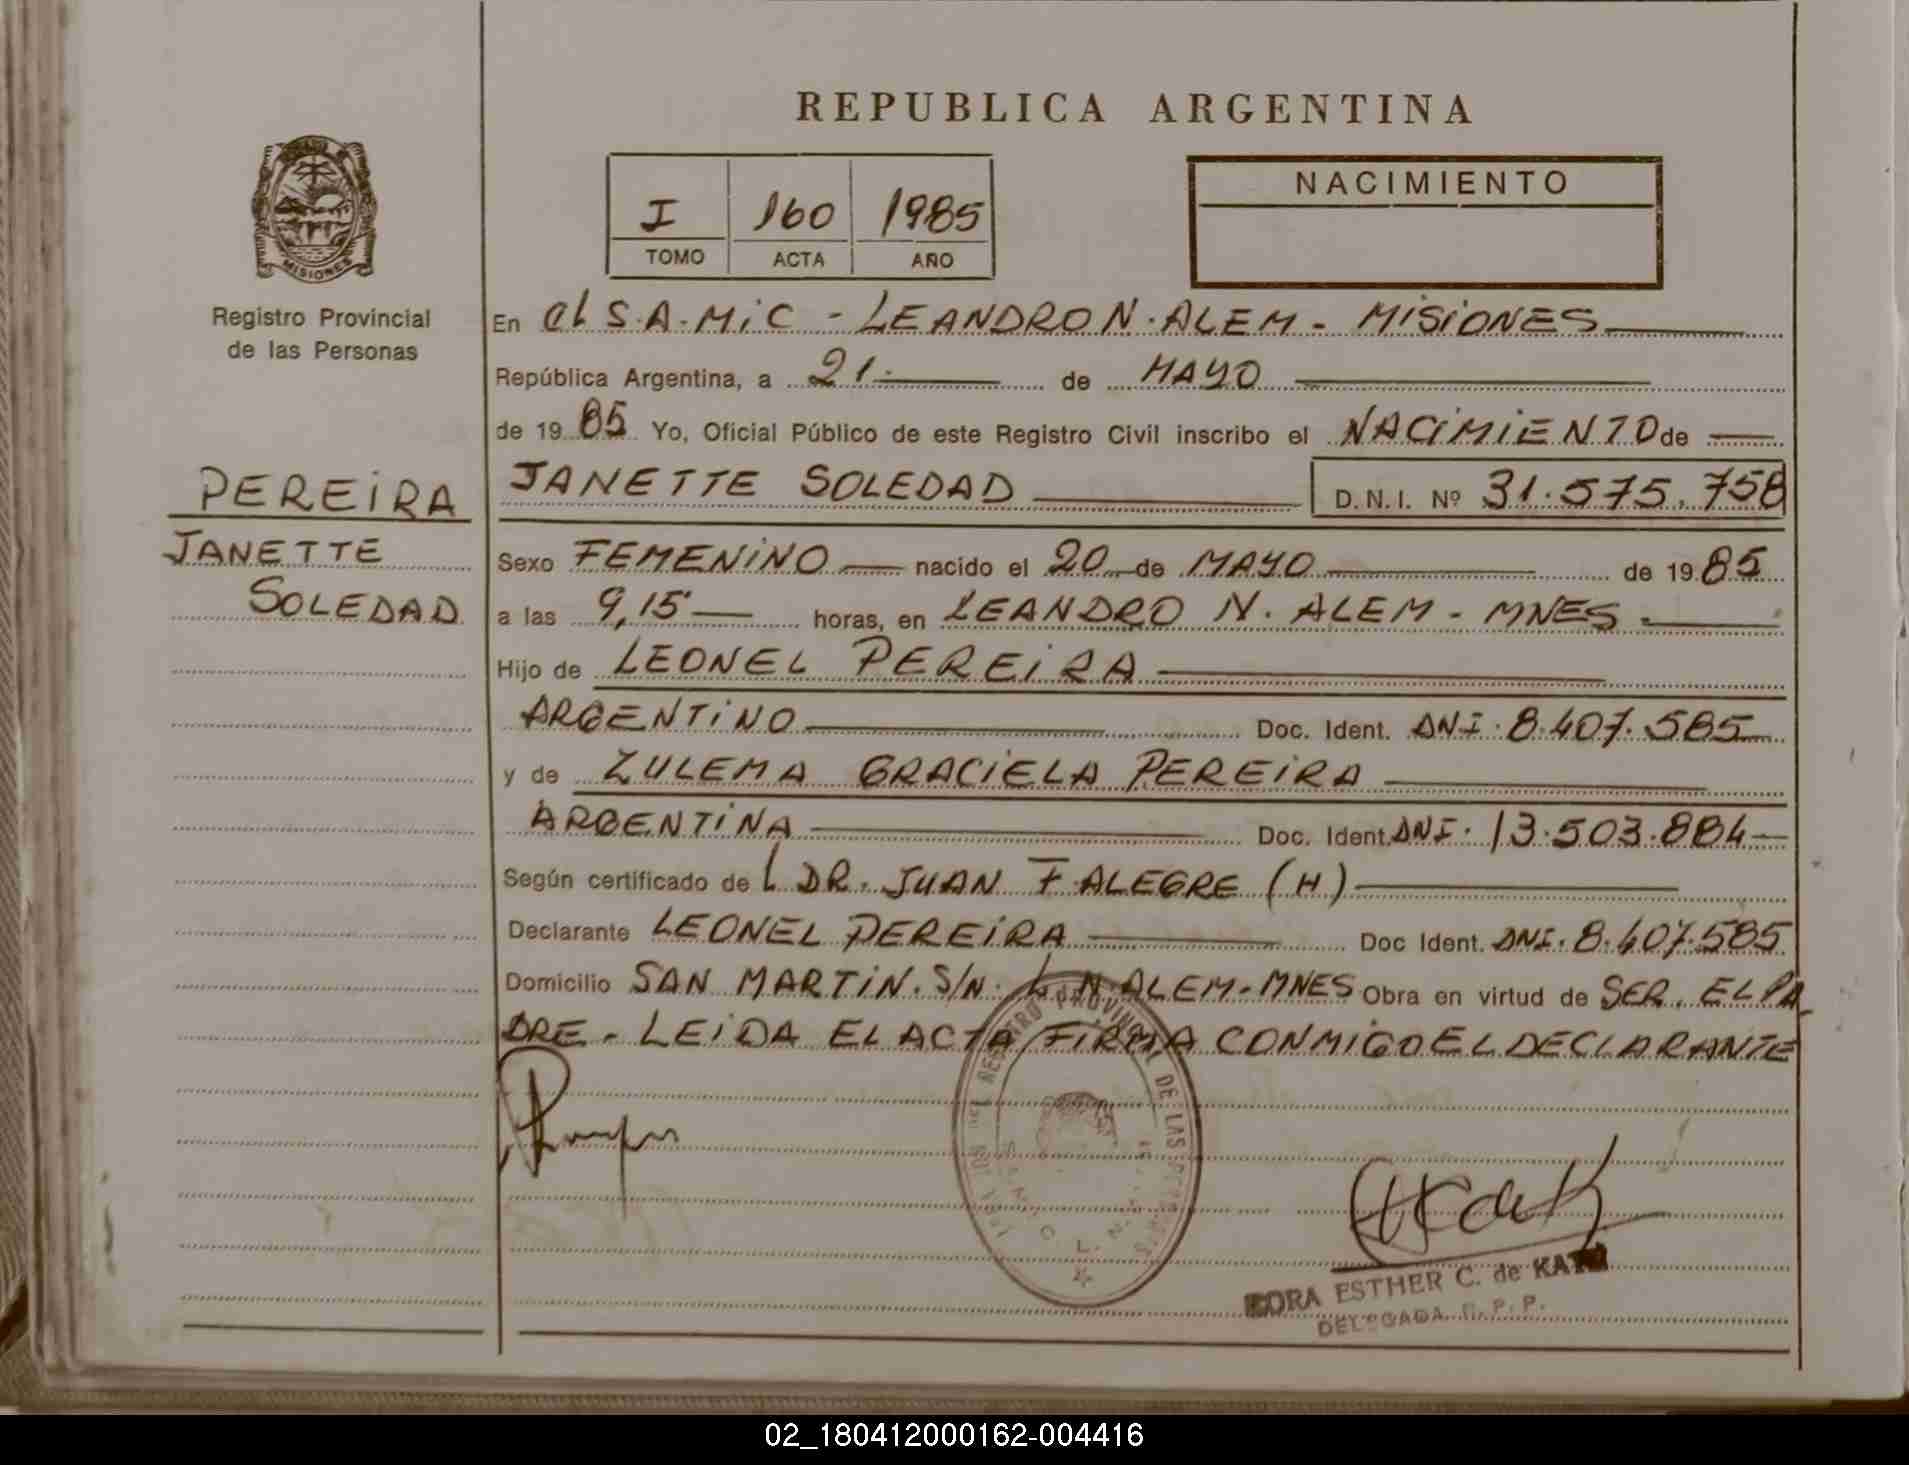 REPUBLICA ARGENTINA
I 160 1985
TOMO ACTA AÑO
NACIMIENTO
MISIONES
Registro Provincial
de las Personas
PEREIRA
JANETTE
SOLEDAD
En el S.A.MiC - LEANDRO N. ALEM - MISIONES
República Argentina, a 21 de MAYO
de 19 85 Yo, Oficial Público de este Registro Civil inscribo el NACIMIENTO de
JANETTE SOLEDAD D.N.I. Nº 31.575.758
Sexo FEMENINO nacido el 20 de MAYO de 19 85
a las 9,15 horas, en LEANDRO N. ALEM - MNES
Hijo de LEONEL PEREIRA
ARGENTINO Doc. Ident. DNI. 8.407.585
y de ZULEMA GRACIELA PEREIRA
ARGENTINA Doc. Ident. DNI. 13.503.884
Según certificado del DR. JUAN F. ALEGRE (H)
Declarante LEONEL PEREIRA Doc Ident. DNI. 8.407.585
Domicilio SAN MARTIN. S/N. L. N ALEM - MNES Obra en virtud de SER EL PA-
DRE - LEIDA EL ACTA FIRMA CONMIGO EL DECLARANTE
REGISTRO PROVINCIAL DE LAS PERSONAS
ESTHER C. de
DELEGADA R. P. P.
02_180412000162-004416